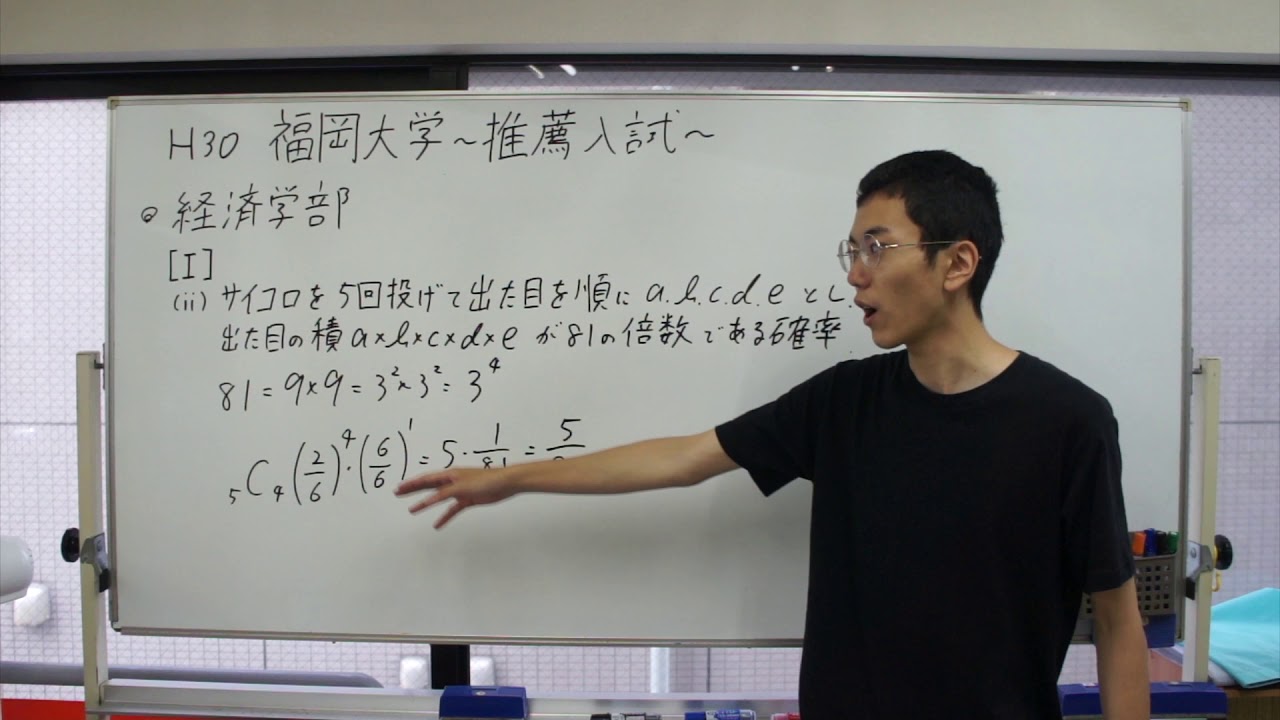 H30 福岡大学~推薦入試~
◦ 経済学部
[I]
(ii) サイコロを5回投げて出た目を順に a.b.c.d.e とし.
出た目の積 a×b×c×d×e が81の倍数である確率.
81 = 9×9 = 3²×3² = 3⁴
₅C₄ (2/6)⁴・(6/6)¹ = 5・1/81 = 5/